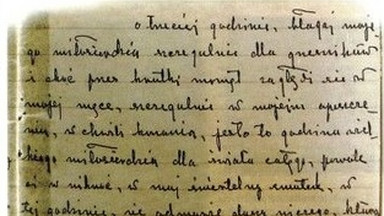 o trzeciej godzinie, błagaj moje-
go miłosierdzia szczegulnie dla grzeszników
i choć przez krutki moment zagłębi się w
mojej męce, szczegulnie w mojem opuszcze-
niu, w chwili konania, jest to godzina wiel-
kiego miłosierdzia dla świata całego, pozwolę
ci wniknąć, w mój śmiertelny smutek, w
tej godzinie, nie odmówię duszy niczego, która